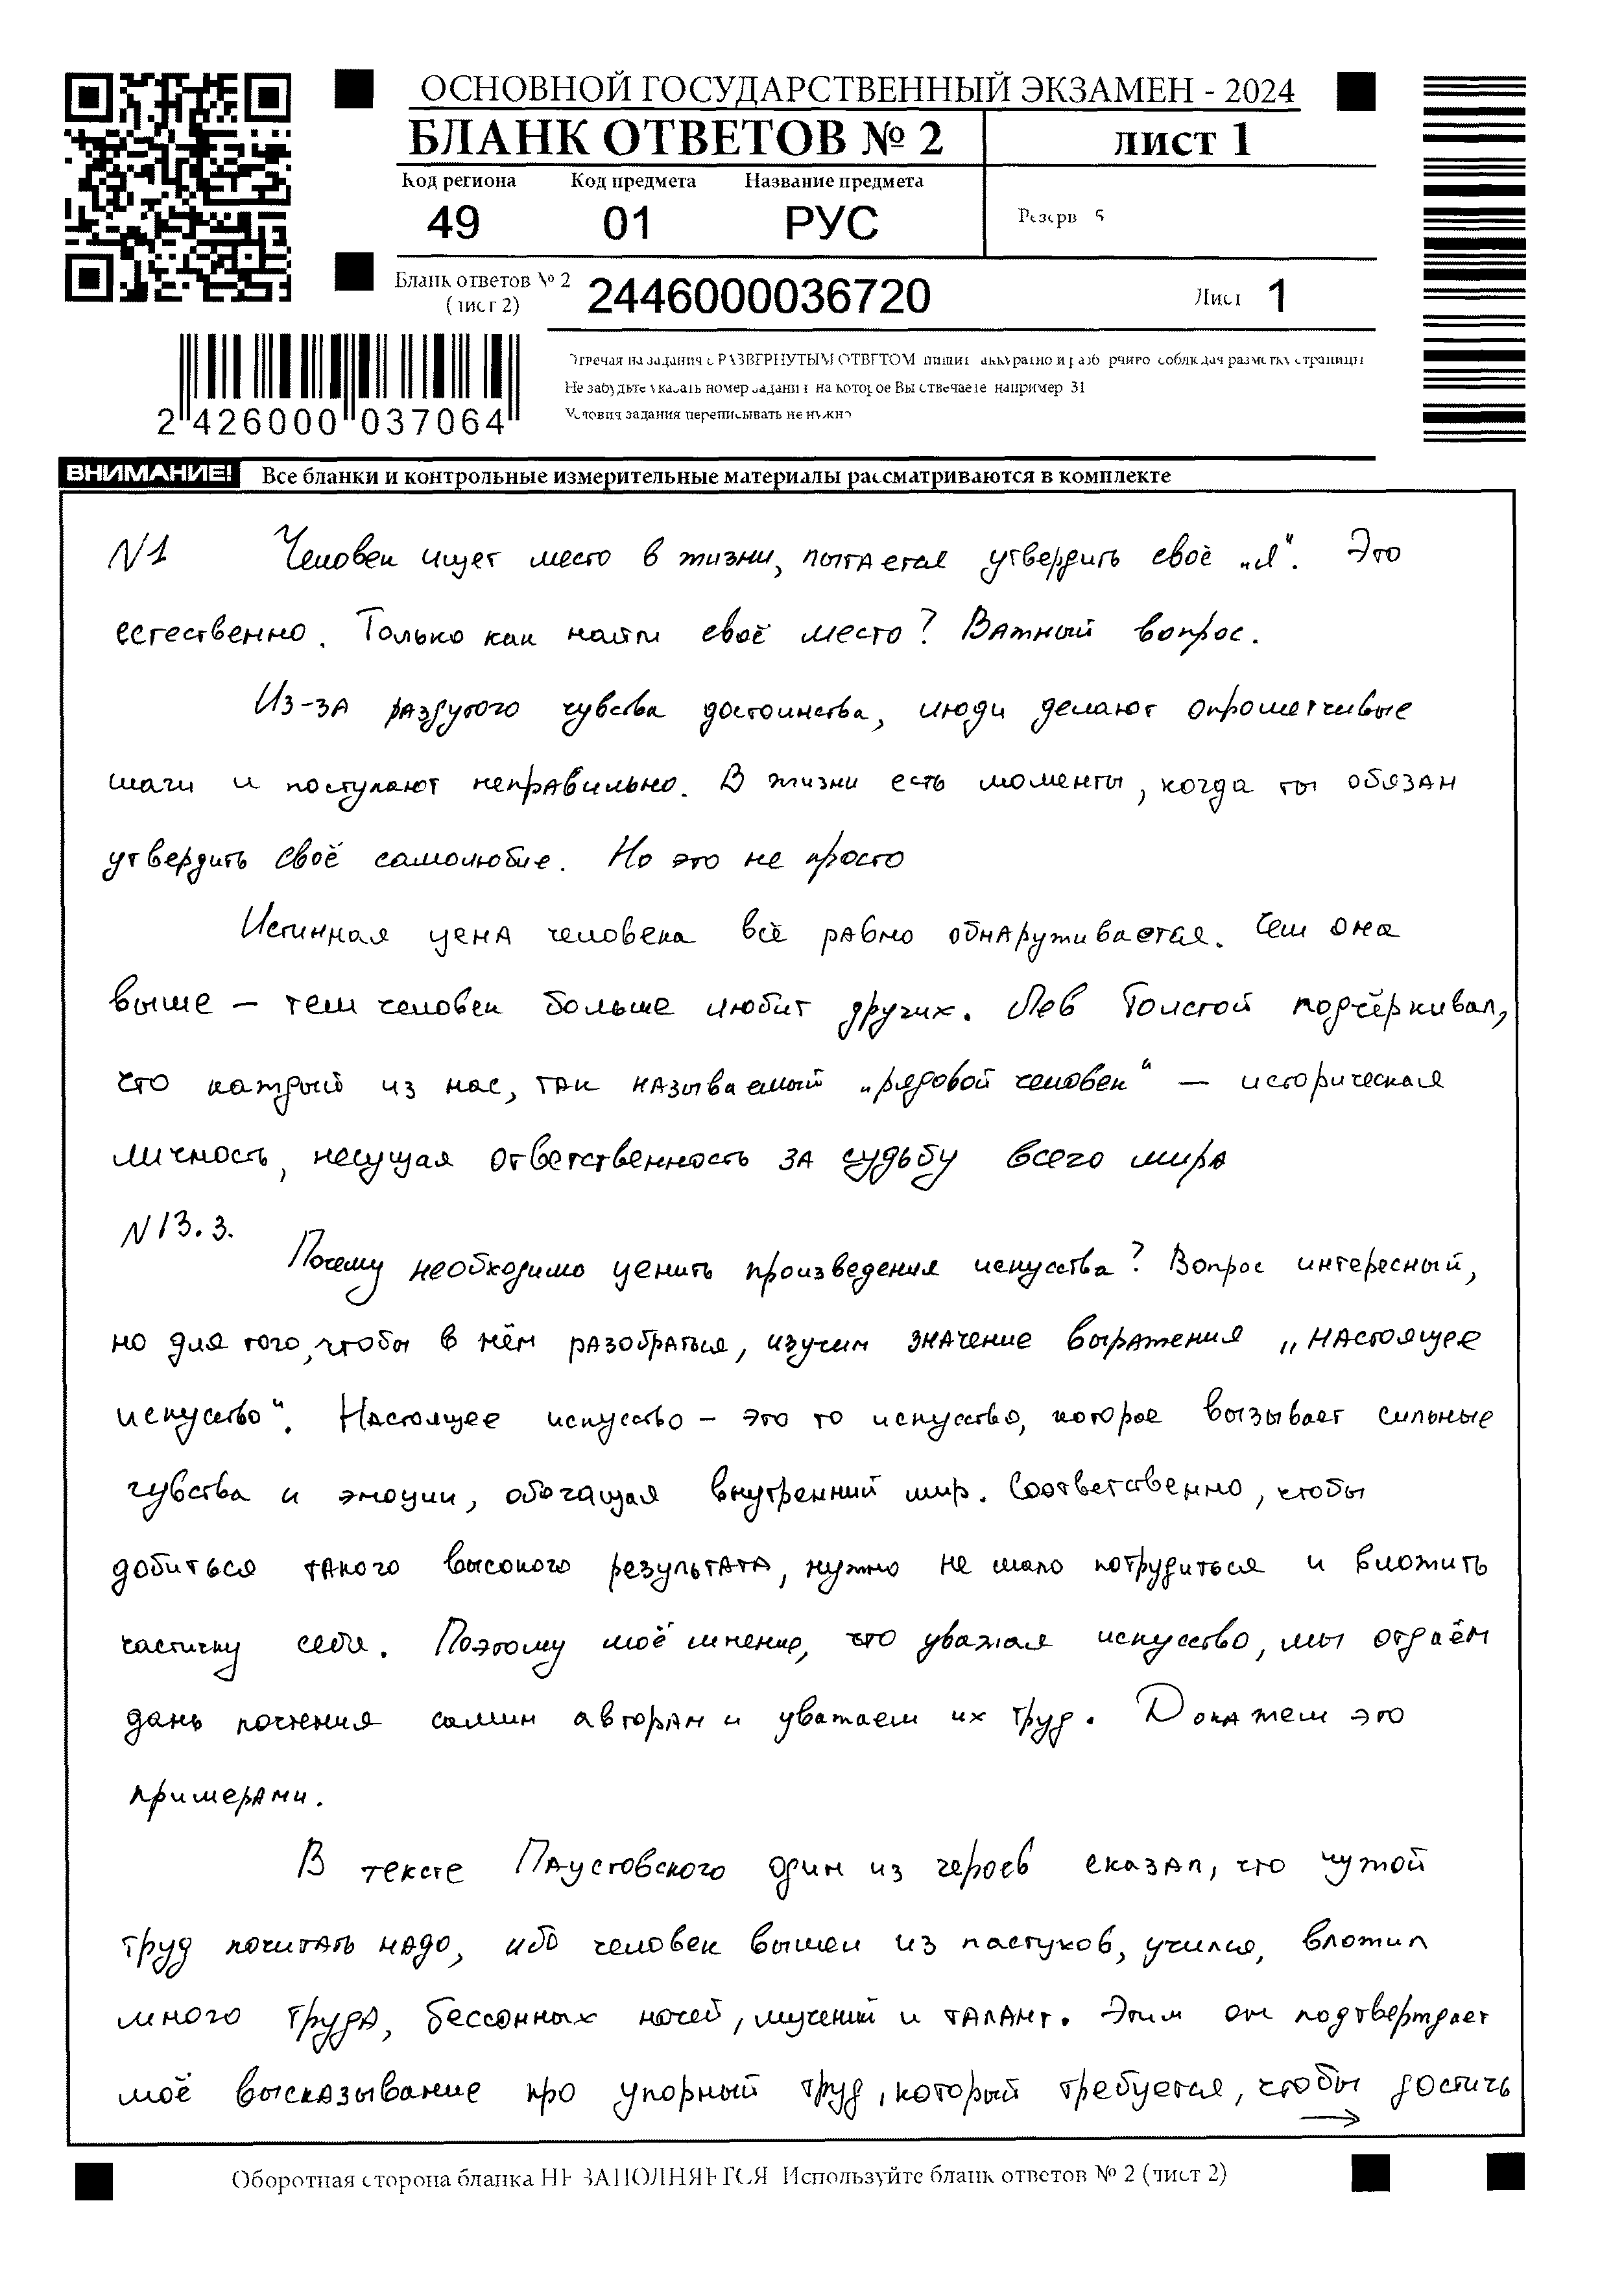 ОСНОВНОЙ ГОСУДАРСТВЕННЫЙ ЭКЗАМЕН - 2024
БЛАНК ОТВЕТОВ № 2
лист 1
Код региона Код предмета Название предмета
49 01 РУС
Резерв 5
Бланк ответов № 2
(лист 2)
2446000036720
Лист 1
Отвечая на задания с РАЗВЕРНУТЫМ ОТВЕТОМ пишите аккуратно и разборчиво соблюдая разметку страницы
Не забудьте указать номер задания на которое Вы отвечаете например 31
Условия задания переписывать не нужно
2 426000 037064
ВНИМАНИЕ! Все бланки и контрольные измерительные материалы рассматриваются в комплекте
N1 Человек ищет место в жизни, пытается утвердить своё „я“. Это
естественно. Только как найти своё место? Важный вопрос.
Из-за раздутого чувства достоинства, люди делают опрометчивые
шаги и поступают неправильно. В жизни есть моменты, когда ты обязан
утвердить своё самолюбие. Но это не просто
Истинная цена человека всё равно обнаруживается. Чем она
выше – тем человек больше любит других. Лев Толстой подчёркивал,
что каждый из нас, так называемый „рядовой человек“ – историческая
личность, несущая ответственность за судьбу всего мира
N13.3.
Почему необходимо ценить произведения искусства? Вопрос интересный,
но для того, чтобы в нём разобраться, изучим значение выражения „настоящее
искусство“. Настоящее искусство – это то искусство, которое вызывает сильные
чувства и эмоции, обогащая внутренний мир. Соответственно, чтобы
добиться такого высокого результата, нужно не мало потрудиться и вложить
частичку себя. Поэтому моё мнение, что уважая искусство, мы отдаём
дань почтения самим авторам и уважаем их труд. Докажем это
примерами.
В тексте Паустовского один из героев сказал, что чужой
труд почитать надо, ибо человек вышел из пастухов, учился, вложил
много труда, бессонных ночей, мучений и талант. Этим он подтверждает
моё высказывание про упорный труд, который требуется, чтобы достичь
→
Оборотная сторона бланка НЕ ЗАПОЛНЯЕТСЯ Используйте бланк ответов № 2 (лист 2)